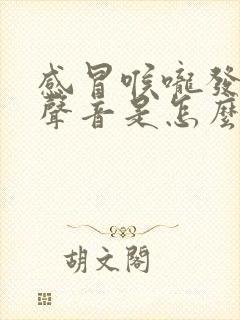 感冒喉嚨發
聲音是怎麼
胡文閣